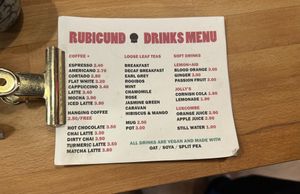 RUBICUND DRINKS MENU
COFFEE +
ESPRESSO 2.40
AMERICANO 2.70
CORTADO 2.80
FLAT WHITE 3.20
CAPPUCCINO 3.40
LATTE 3.40
MOCHA 3.90
ICED LATTE 3.80
HANGING COFFEE
2.50/FREE
HOT CHOCOLATE 3.80
CHAI LATTE 3.80
DIRTY CHAI 3.90
TURMERIC LATTE 3.80
MATCHA LATTE 3.80
LOOSE LEAF TEAS
BREAKFAST
DECAF BREAKFAST
EARL GREY
ROOIBOS
MINT
CHAMOMILE
ROSE
JASMINE GREEN
CARAVAN
HIBISCUS & MANGO
MUG 2.50
POT 3.00
SOFT DRINKS
LEMON-AID
BLOOD ORANGE 3.50
GINGER 3.50
PASSION FRUIT 3.50
JOLLY'S
CORNISH COLA 3.50
LEMONADE 3.50
LUSCOMBE
ORANGE JUICE 3.50
APPLE JUICE 3.50
STILL WATER 1.80
ALL DRINKS ARE VEGAN AND MADE WITH
OAT / SOYA / SPLIT PEA